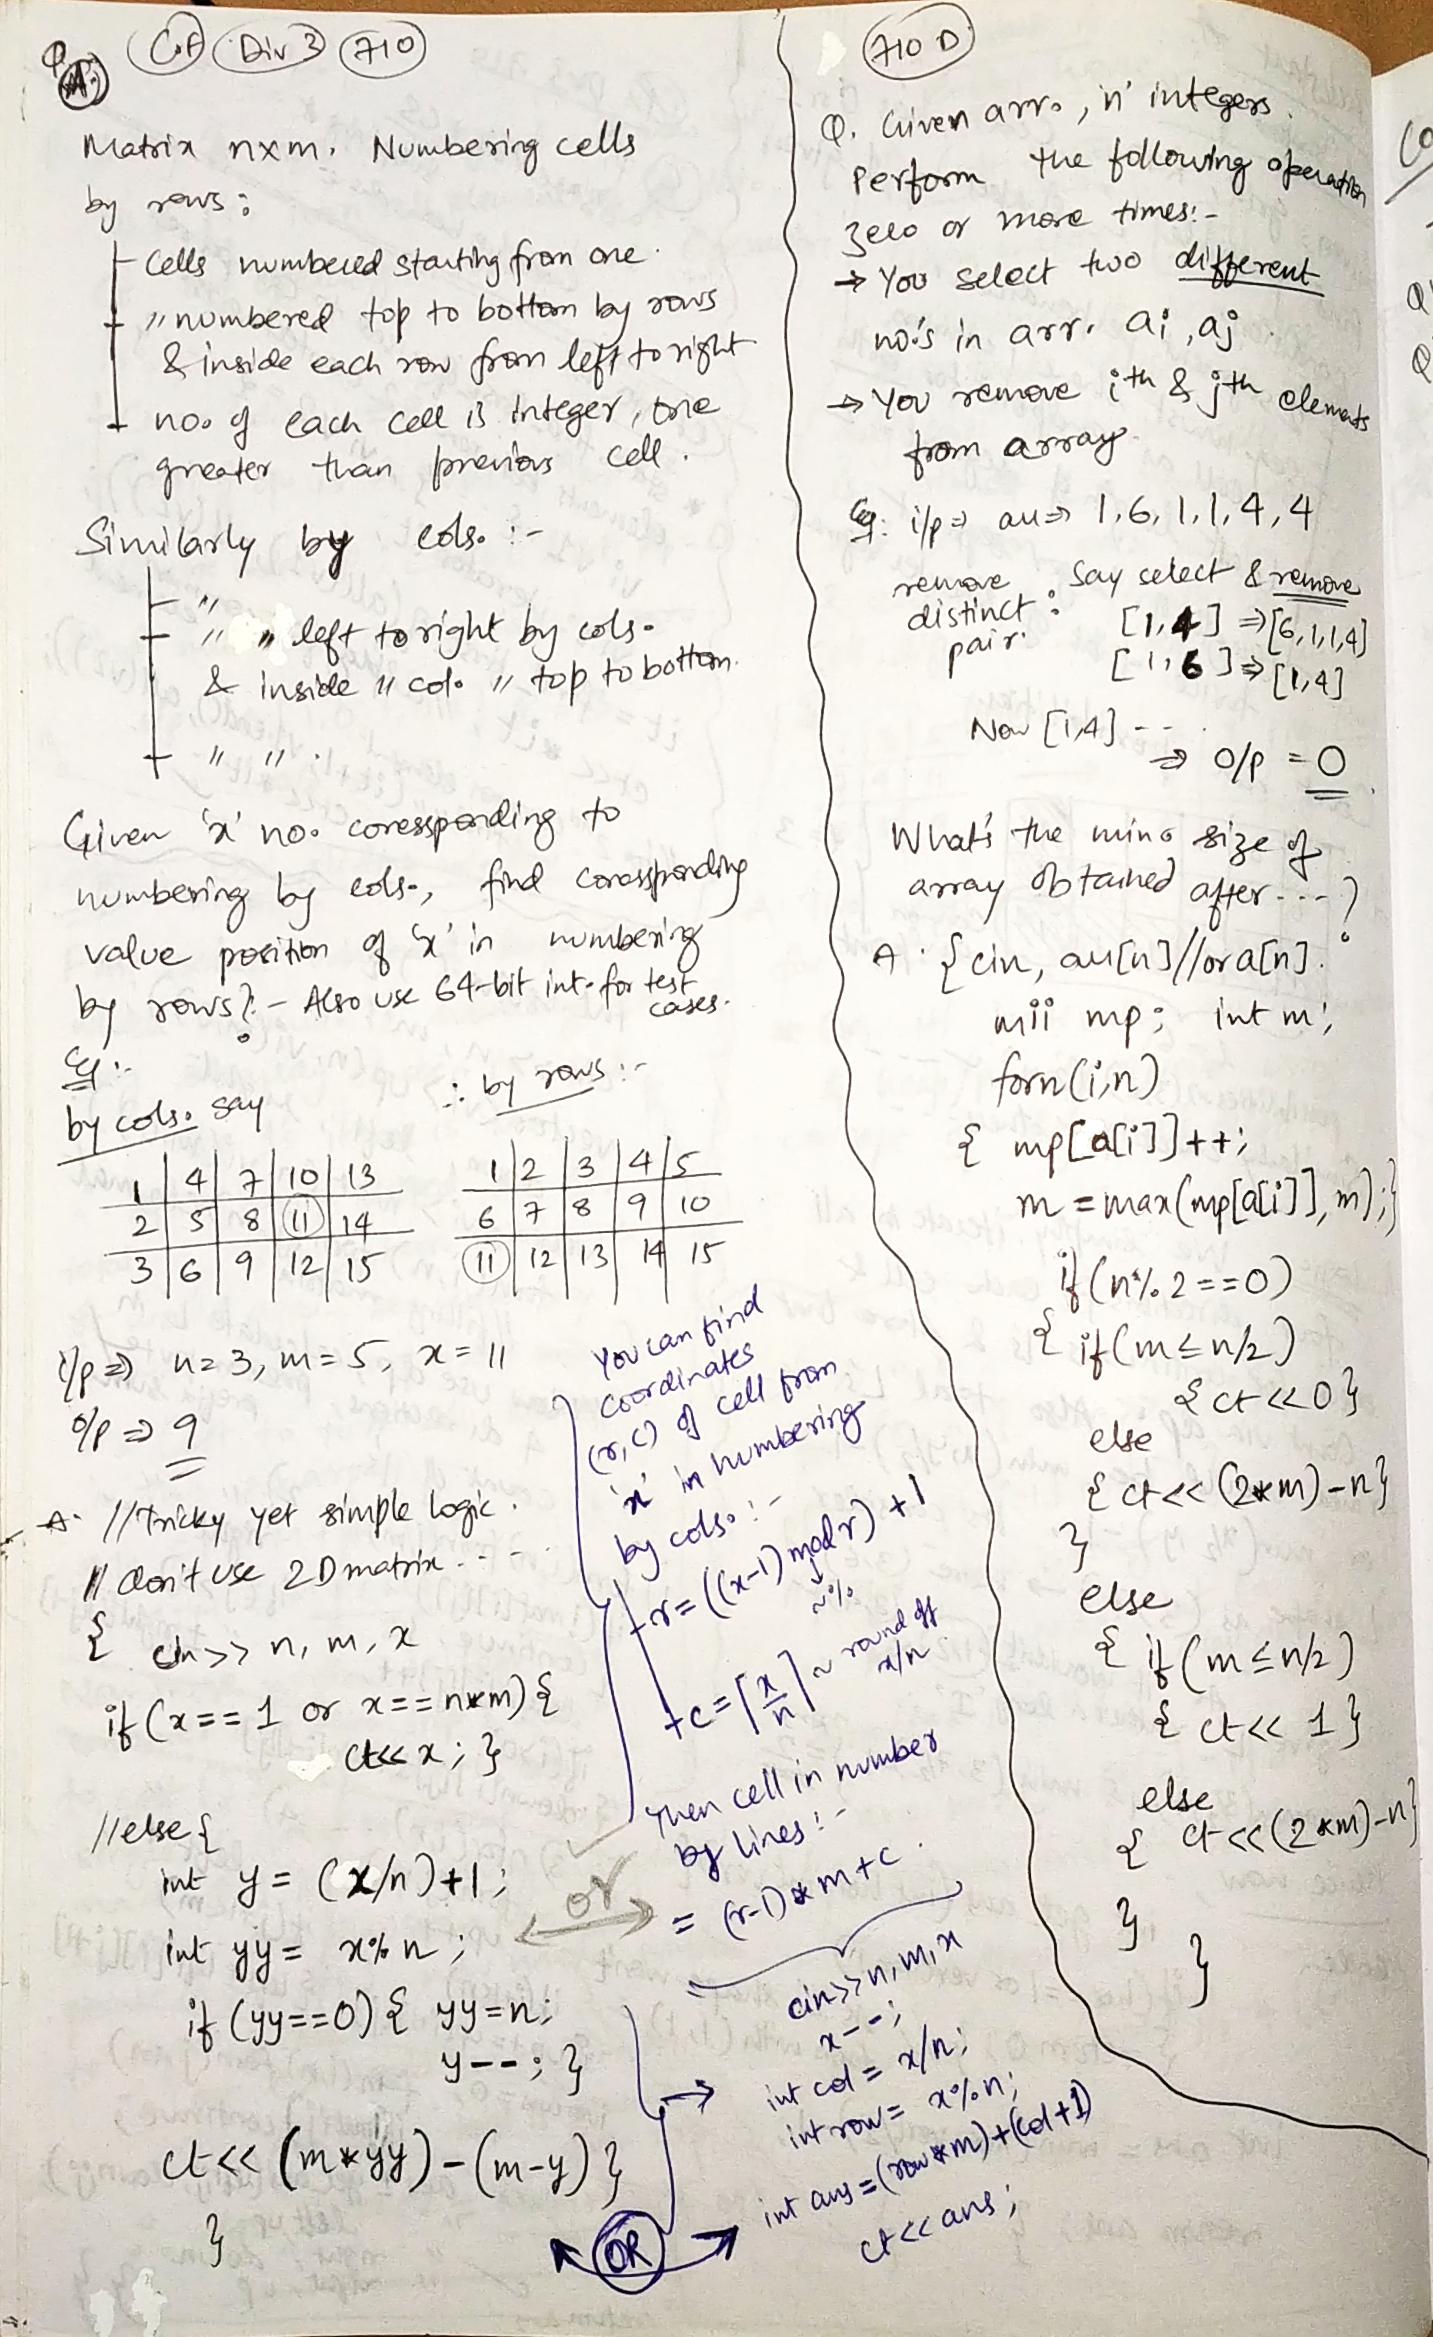 Q
C.F Div 3 710
Matrix nxm. Numbering cells
by rows:
Cells numbered starting from one.
" numbered top to bottom by rows
& inside each row from left to right
no. of each cell is integer, one
greater than previous cell.
Similarly by cols. :-
"
" " left to right by cols.
& inside " col. " top to bottom.
" " .
Given 'x' no. coressponding to
numbering by cols., find coressponding
value position of 'x' in numbering
by rows? - Also use 64-bit int. for test
cases.
Eg:-
by cols. say
∴ by rows :-
1 | 4 | 7 | 10 | 13
2 | 5 | 8 | 11 | 14
3 | 6 | 9 | 12 | 15
1 | 2 | 3 | 4 | 5
6 | 7 | 8 | 9 | 10
11 | 12 | 13 | 14 15
i/p => n=3, m=5, x=11
o/p => 9
A. //tricky yet simple logic.
// don't use 2D matrix - - -
{ cin>> n, m, x
if (x==1 or x==n*m) {
ct<< x; }
//else {
int y = (x/n)+1;
int yy = x%n;
if (yy==0) { yy=n;
y--; }
ct<< (m*yy)-(m-y) }
}
You can find
coordinates
(r,c) of cell from
'x' in numbering
by cols. :-
r = ((x-1) mod r) +1
~%
c = ⌈x/n⌉ ~ round off
x/n
Then cell in number
by lines :-
= (r-1)*m+c.
or
cin>>n,m,x
x--;
int col = x/n;
int row = x%n;
int ans = (row*m)+(col+1)
ct<< ans;
OR
710 D
Q. Given arr., 'n' integers.
Perform the following operation
zero or more times:-
→ You select two different
no's in arr. ai, aj.
→ You remove ith & jth elements
from array.
Eg: i/p => arr => 1,6,1,1,4,4
remove
distinct :
pair.
Say select & remove
[1,4] => [6,1,1,4]
[1,6] => [1,4]
Now [1,4] - - .
=> o/p = 0
What's the min. size of
array obtained after - - - ?
A. { cin, arr[n]//or a[n].
mii mp; int m;
forn(i,n)
{ mp[a[i]]++;
m = max(mp[a[i]], m);}
if (n%2==0)
{ if (m≤n/2)
{ ct<<0 }
else
{ ct<< (2*m)-n }
}
else
{ if (m≤n/2)
{ ct<< 1 }
else
{ ct<<(2*m)-n }
}
}